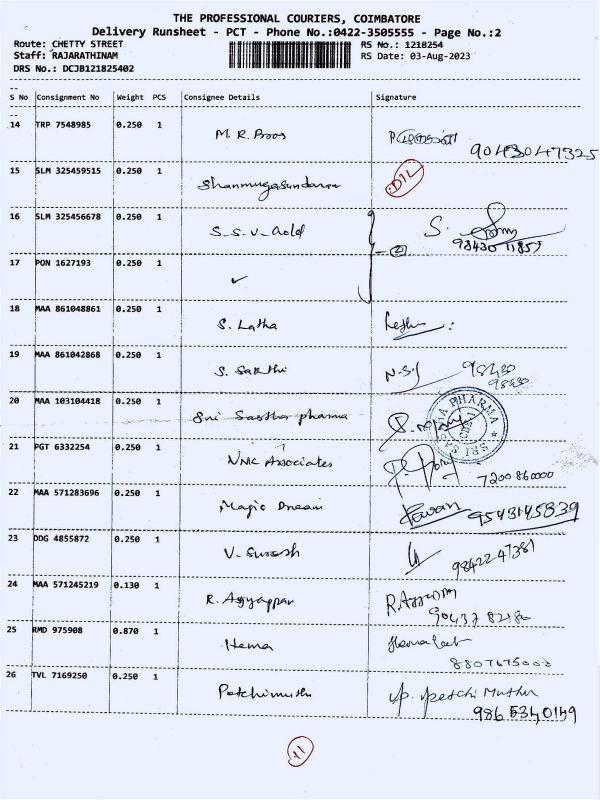 THE PROFESSIONAL COURIERS, COIMBATORE
Delivery Runsheet - PCT - Phone No.:0422-3505555 - Page No.:2
Route: CHETTY STREET RS No.: 1218254
Staff: RAJARATHINAM RS Date: 03-Aug-2023
DRS No.: DCJB121825402
S No Consignment No Weight PCS Consignee Details Signature
14 TRP 7548985 0.250 1 M.R. Bros
9043047325
15 SLM 325459515 0.250 1 Shanmugasundaram D/L
16 SLM 325456678 0.250 1 S-S-V-Gold S.
2
17 PON 1627193 0.250 1 ✓
18 MAA 861048861 0.250 1 S. Latha
19 MAA 861042868 0.250 1 S. Sakthi N.S 98430
98430
20 MAA 103104418 0.250 1 Sri Sastha pharma
21 PGT 6332254 0.250 1 NMC Associates
7200860000
22 MAA 571283696 0.250 1 Magic Dream Pawan 9543145839
23 DDG 4855872 0.250 1 V. Suresh 9842247381
24 MAA 571245219 0.130 1 R. Ayyappan
90437 82186
25 RMD 975908 0.870 1 Hema
8807675003
26 TVL 7169250 0.250 1 Petchimuthu P. Petchi Muthu
9865340149
11